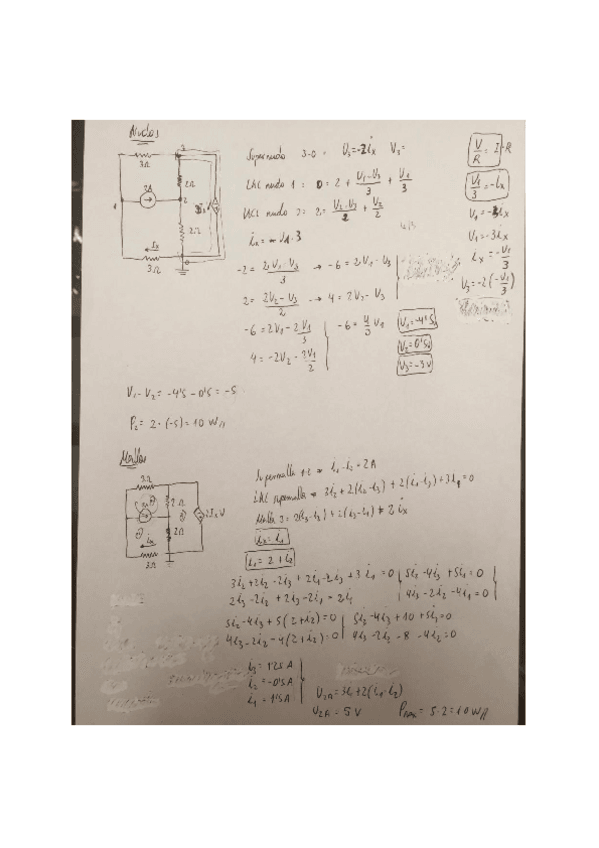 Nudos
3Ω
2Ω
2A
1
2
2Ω
ix
3Ω
0
Supernudo 3-0 = V3=-2ix V3=
LKC nudo 1 = 0 = 2 + (V1-V3)/3 + V1/3
KCL nudo 2: 2 = (V2-V3)/2 + V2/2
-2 = (2V1-V3)/3 → -6 = 2V1 - V3
2 = (2V2-V3)/2 → 4 = 2V2 - V3
-6 = 2V1 - 2V1/3
-6 = 4/3 V1
4 = -2V2 - 2V1/2
V1 = -4'5V
V2 = 0'5V
V3 = -3V
V/R = I·R
V1/3 = -ix
V1 = -3ix
V1 = -3ix
ix = -V1/3
V3 = -2(-V1/3)
V1-V2 = -4'5 - 0'5 = -5
P2 = 2·(-5) = 10 W
Mallas
3Ω
2Ω
2Ω
2Ix
ix
3Ω
Supermalla 1-2 ⇒ i1-i2 = 2A
LKC supermalla ⇒ 3i2 + 2(i2-i3) + 2(i1-i3) + 3i1 = 0
Malla 3 = 2(i3-i2) + 2(i3-i1) = 2ix
ix = i1
i1 = 2 + i2
3i2 + 2i2 - 2i3 + 2i1 - 2i3 + 3i1 = 0
5i2 - 4i3 + 5i1 = 0
2i3 - 2i2 + 2i3 - 2i1 = 2i1
4i3 - 2i2 - 4i1 = 0
5i2 - 4i3 + 5(2+i2) = 0
5i2 - 4i3 + 10 + 5i2 = 0
4i3 - 2i2 - 4(2+i2) = 0
4i3 - 2i2 - 8 - 4i2 = 0
i3 = 1'25 A
i2 = -0'5 A
i1 = 1'5 A
V2A = 3i1 + 2(i1-i2)
V2A = 5V
= 5·2 = 10 W